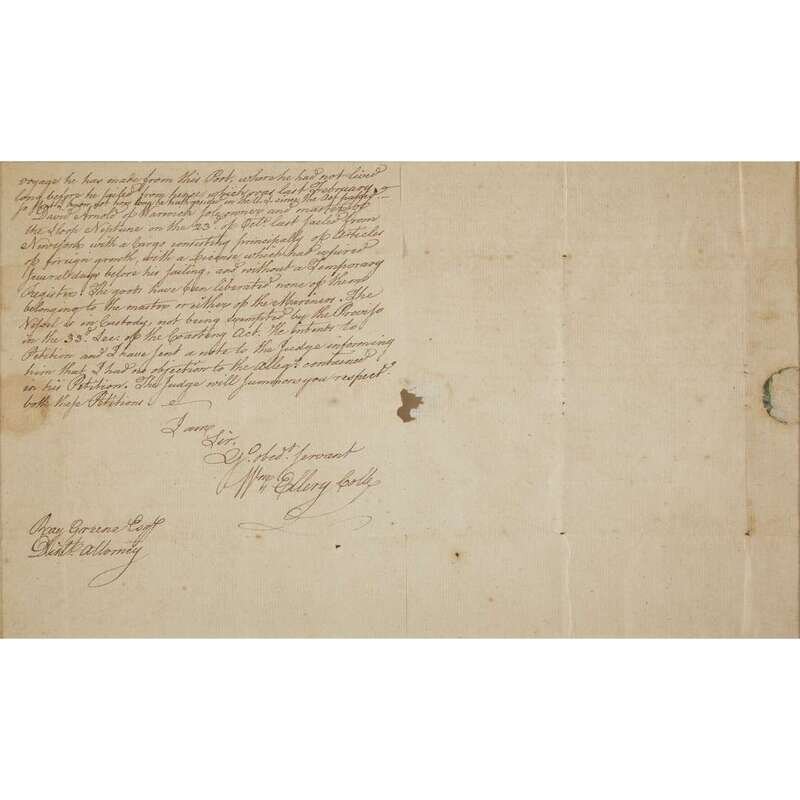 voyage he has made from this Port, where he had not lived
long before he sailed from hence which was last February
so that I know not how long he hath resided in the U. S. since the Act passed.
David Arnold of Warwick sole owner and master of
the Sloop Neptune on the 23d. of Octo. last sailed from
Newyork with a Cargo consisting principally of Articles
of foreign growth, with a License which had expired
several days before his sailing, and without a Temporary
Register. The goods have been liberated none of them
belonging to the master or either of the Mariners. The
Vessel is in Custody, not being exempted by the Proviso
in the 33d. Sec: of the Coasting Act. He intends to
Petition and I have sent a note to the Judge informing
him that I had no objection to the Allegs. contained
in his Petition. The Judge will summons you respectg.
both these Petitions
I am
Sir,
Yr. obedt. servant
Wm Ellery Collr
Ray Greene Esqr
Distt. Attorney